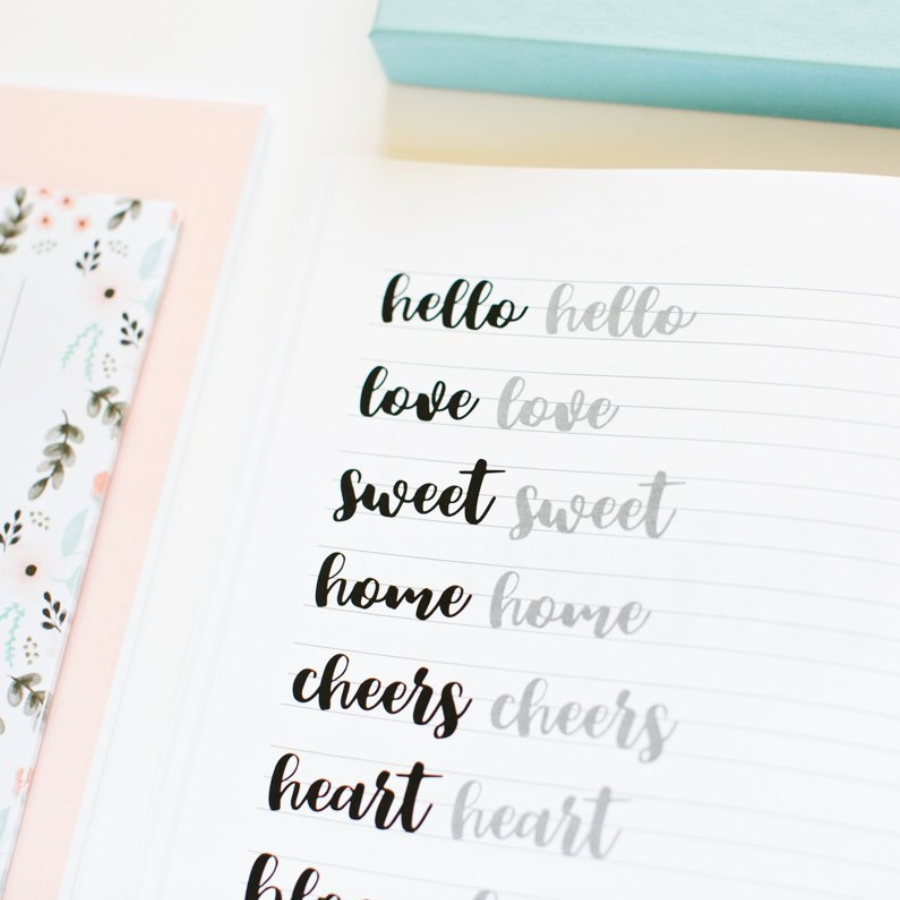 hello hello
love love
sweet sweet
home home
cheers cheers
heart heart